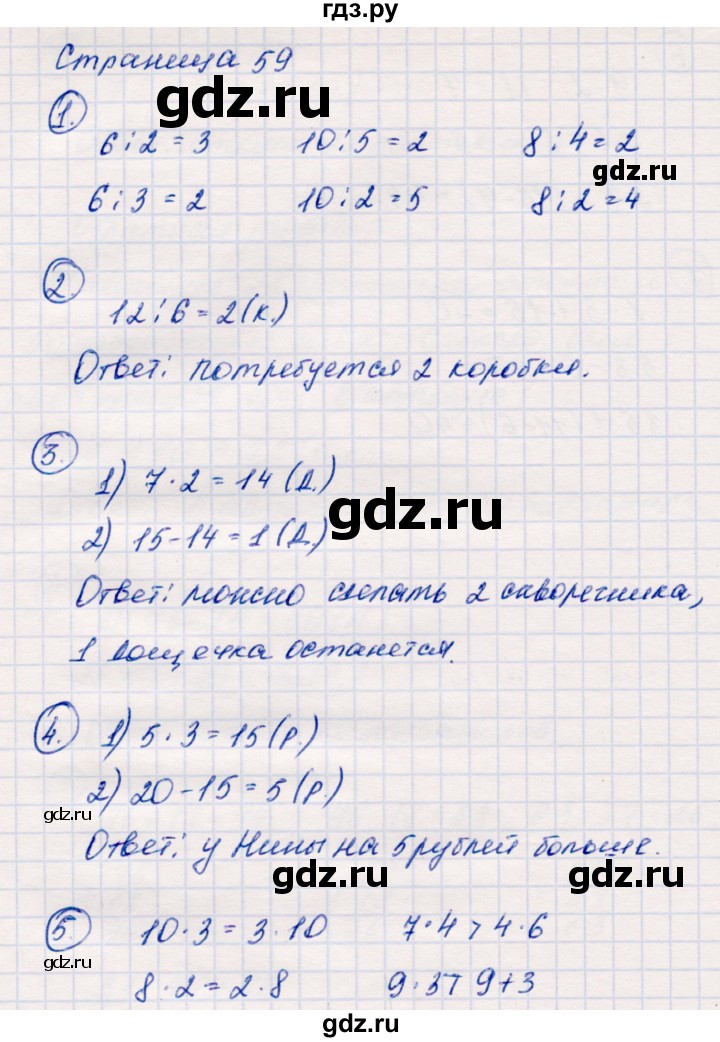 гдз.ру
Страница 59
gdz.ru
1.
6:2=3 10:5=2 8:4=2
gdz.ru
6:3=2 10:2=5 8:2=4
2.
12:6=2(к.)
Ответ: потребуется 2 коробки.
3.
1) 7·2=14(д.)
gdz.ru
2) 15-14=1(д.)
Ответ: можно сделать 2 скворечника,
1 дощечка останется.
4. 1) 5·3=15(р.)
2) 20-15=5(р.)
gdz.ru
Ответ: у Нины на 5 рублей больше.
gdz.ru gdz.ru
5. 10·3=3·10 7·4>4·6
gdz.ru
8·2=2·8 9·3>9+3
gdz.ru